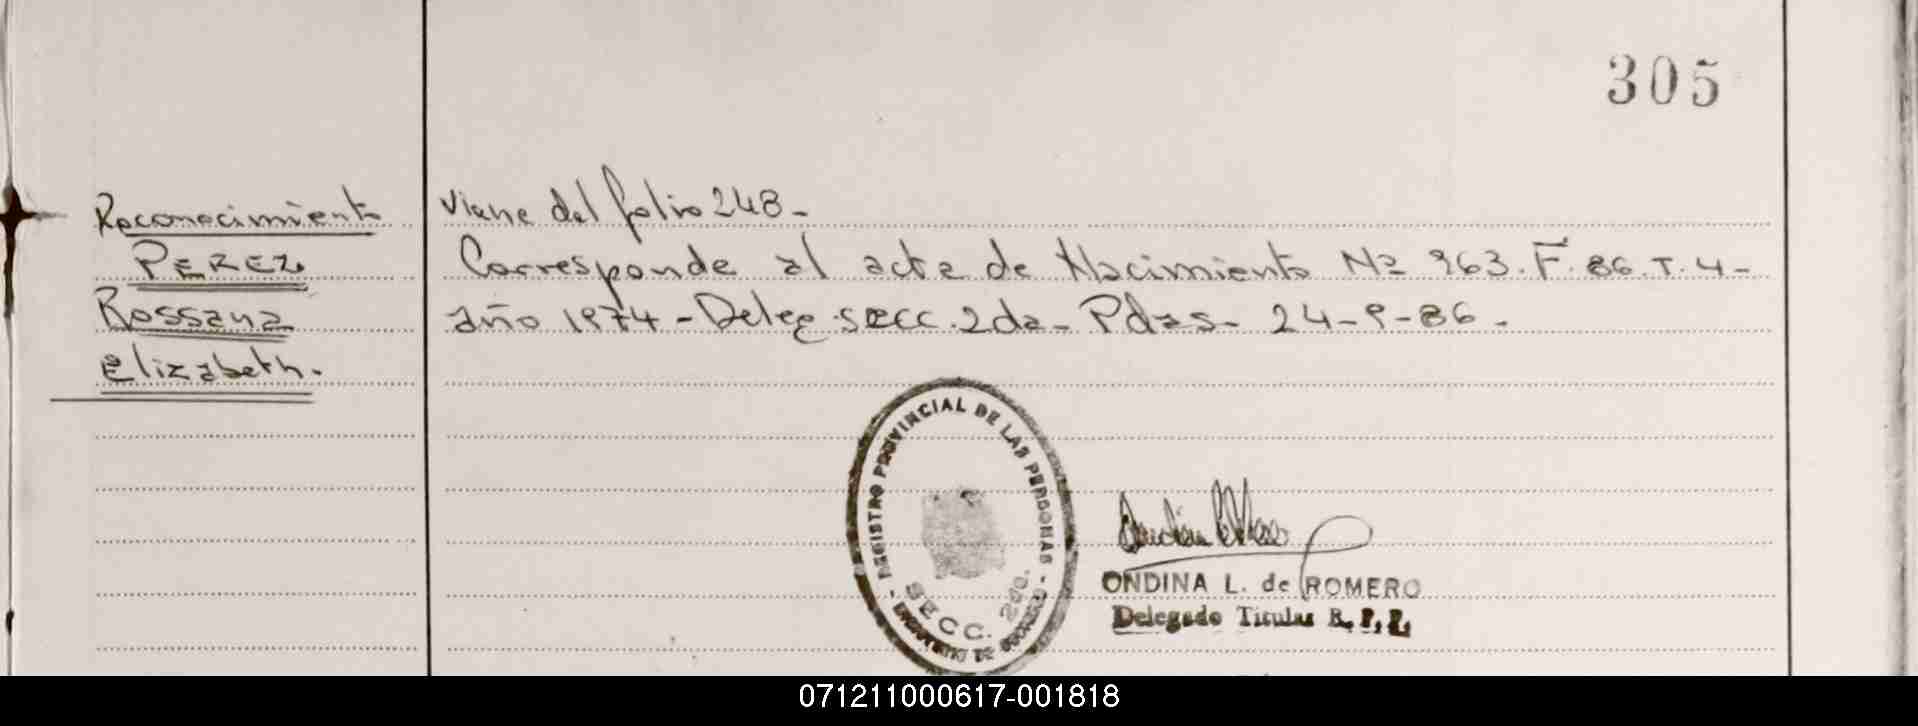 305
Reconocimiento
PEREZ
Rossana
Elizabeth.
Viene del folio 248-
Corresponde al acta de Nacimiento Nº 963. F. 86. T. 4-
año 1974 - Deleg. secc. 2da- Pdas- 24-9-86.
- REGISTRO PROVINCIAL DE LAS PERSONAS -
SECC. 2da.
ONDINA L. de ROMERO
Delegado Titular R. P. P.
071211000617-001818